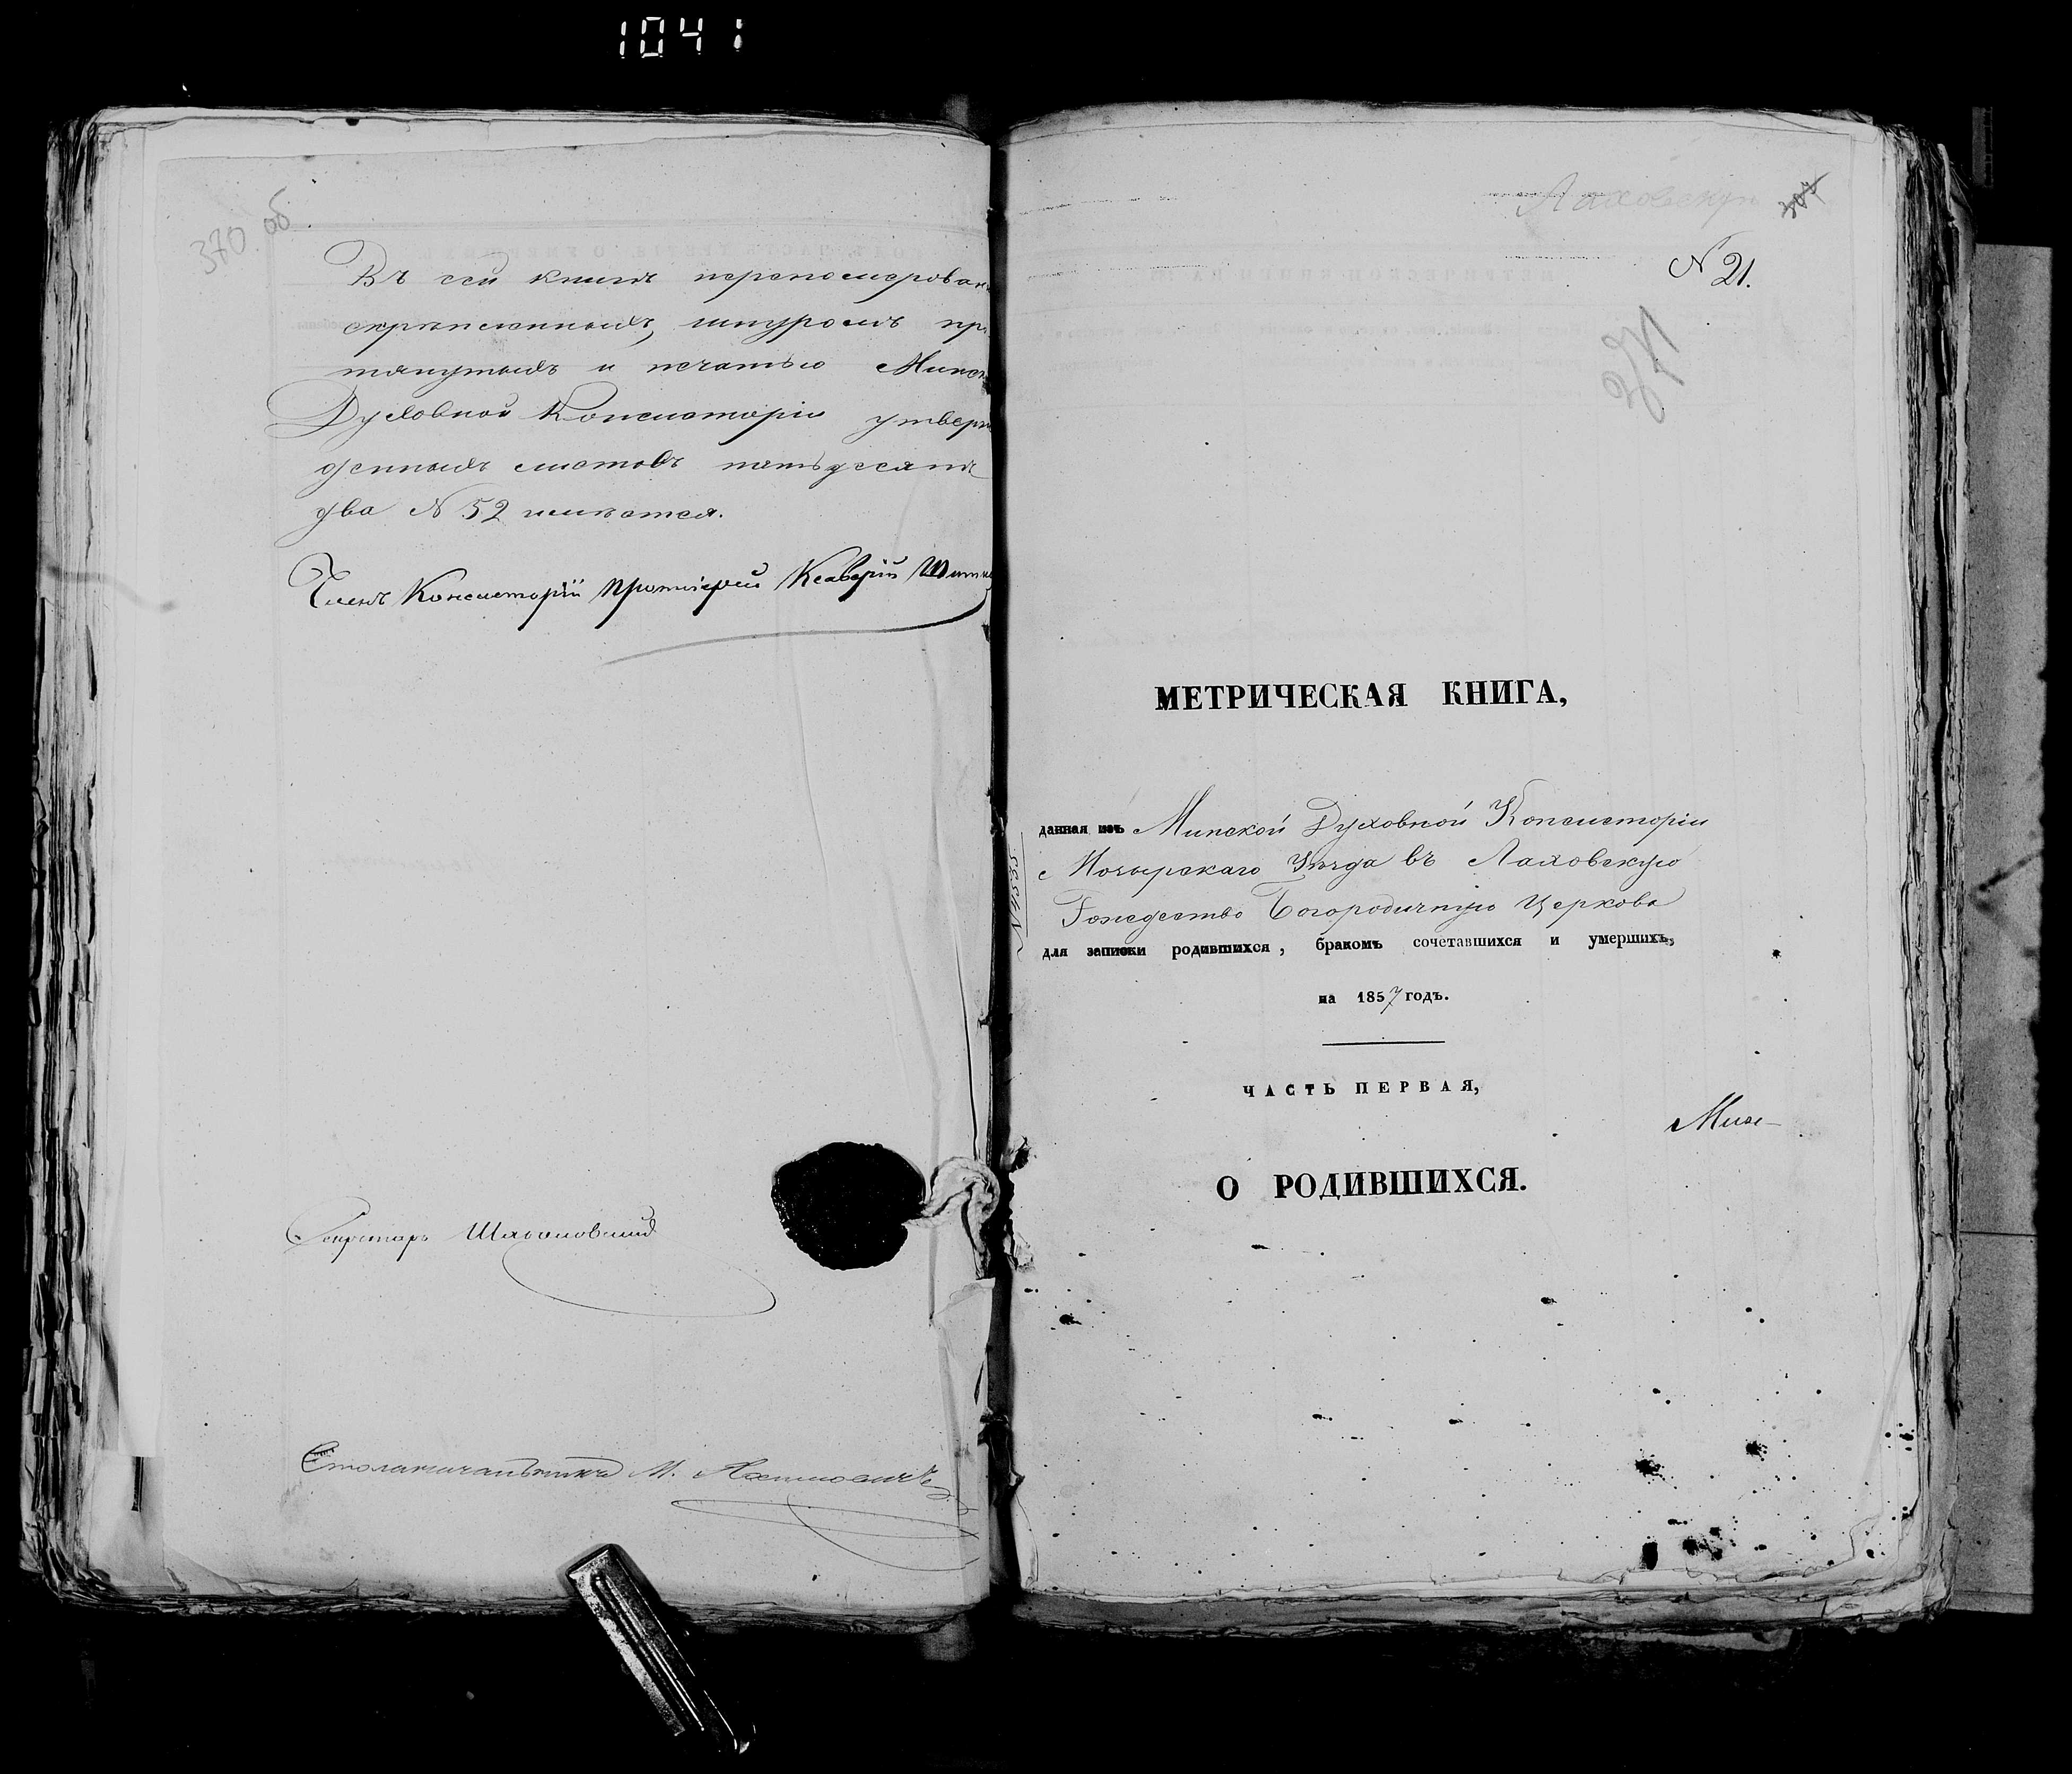 1041
370 об
Въ сей книгѣ перепомерован
скрѣпленныхъ, шнуромъ пр
тянутыхъ и печатью Минск
Духовной Консисторіи утверж
денныхъ листовъ пятьдесятъ
два N 52 имѣется.
Членъ Консисторіи Протоіерей Ксаверій
Секретарь
Столоначальникъ М.
Лаховскую
N 21.
371
МЕТРИЧЕСКАЯ КНИГА,
данная изъ Минской Духовной Консисторіи
Мозырскаго Уѣзда въ Лаховскую
Рождество Богородичную Церковь
для записки родившихся, бракомъ сочетавшихся и умершихъ,
на 1857 годъ.
ЧАСТЬ ПЕРВАЯ,
О РОДИВШИХСЯ.